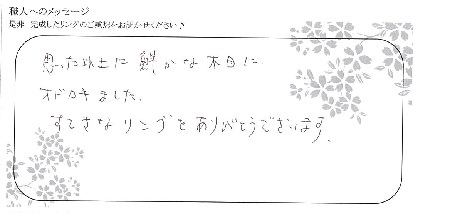 職人へのメッセージ
是非、完成したリングのご感想をお聞かせください♪
思った以上に鮮かな木目に
オドロキました。
すてきなリングをありがとうございます。